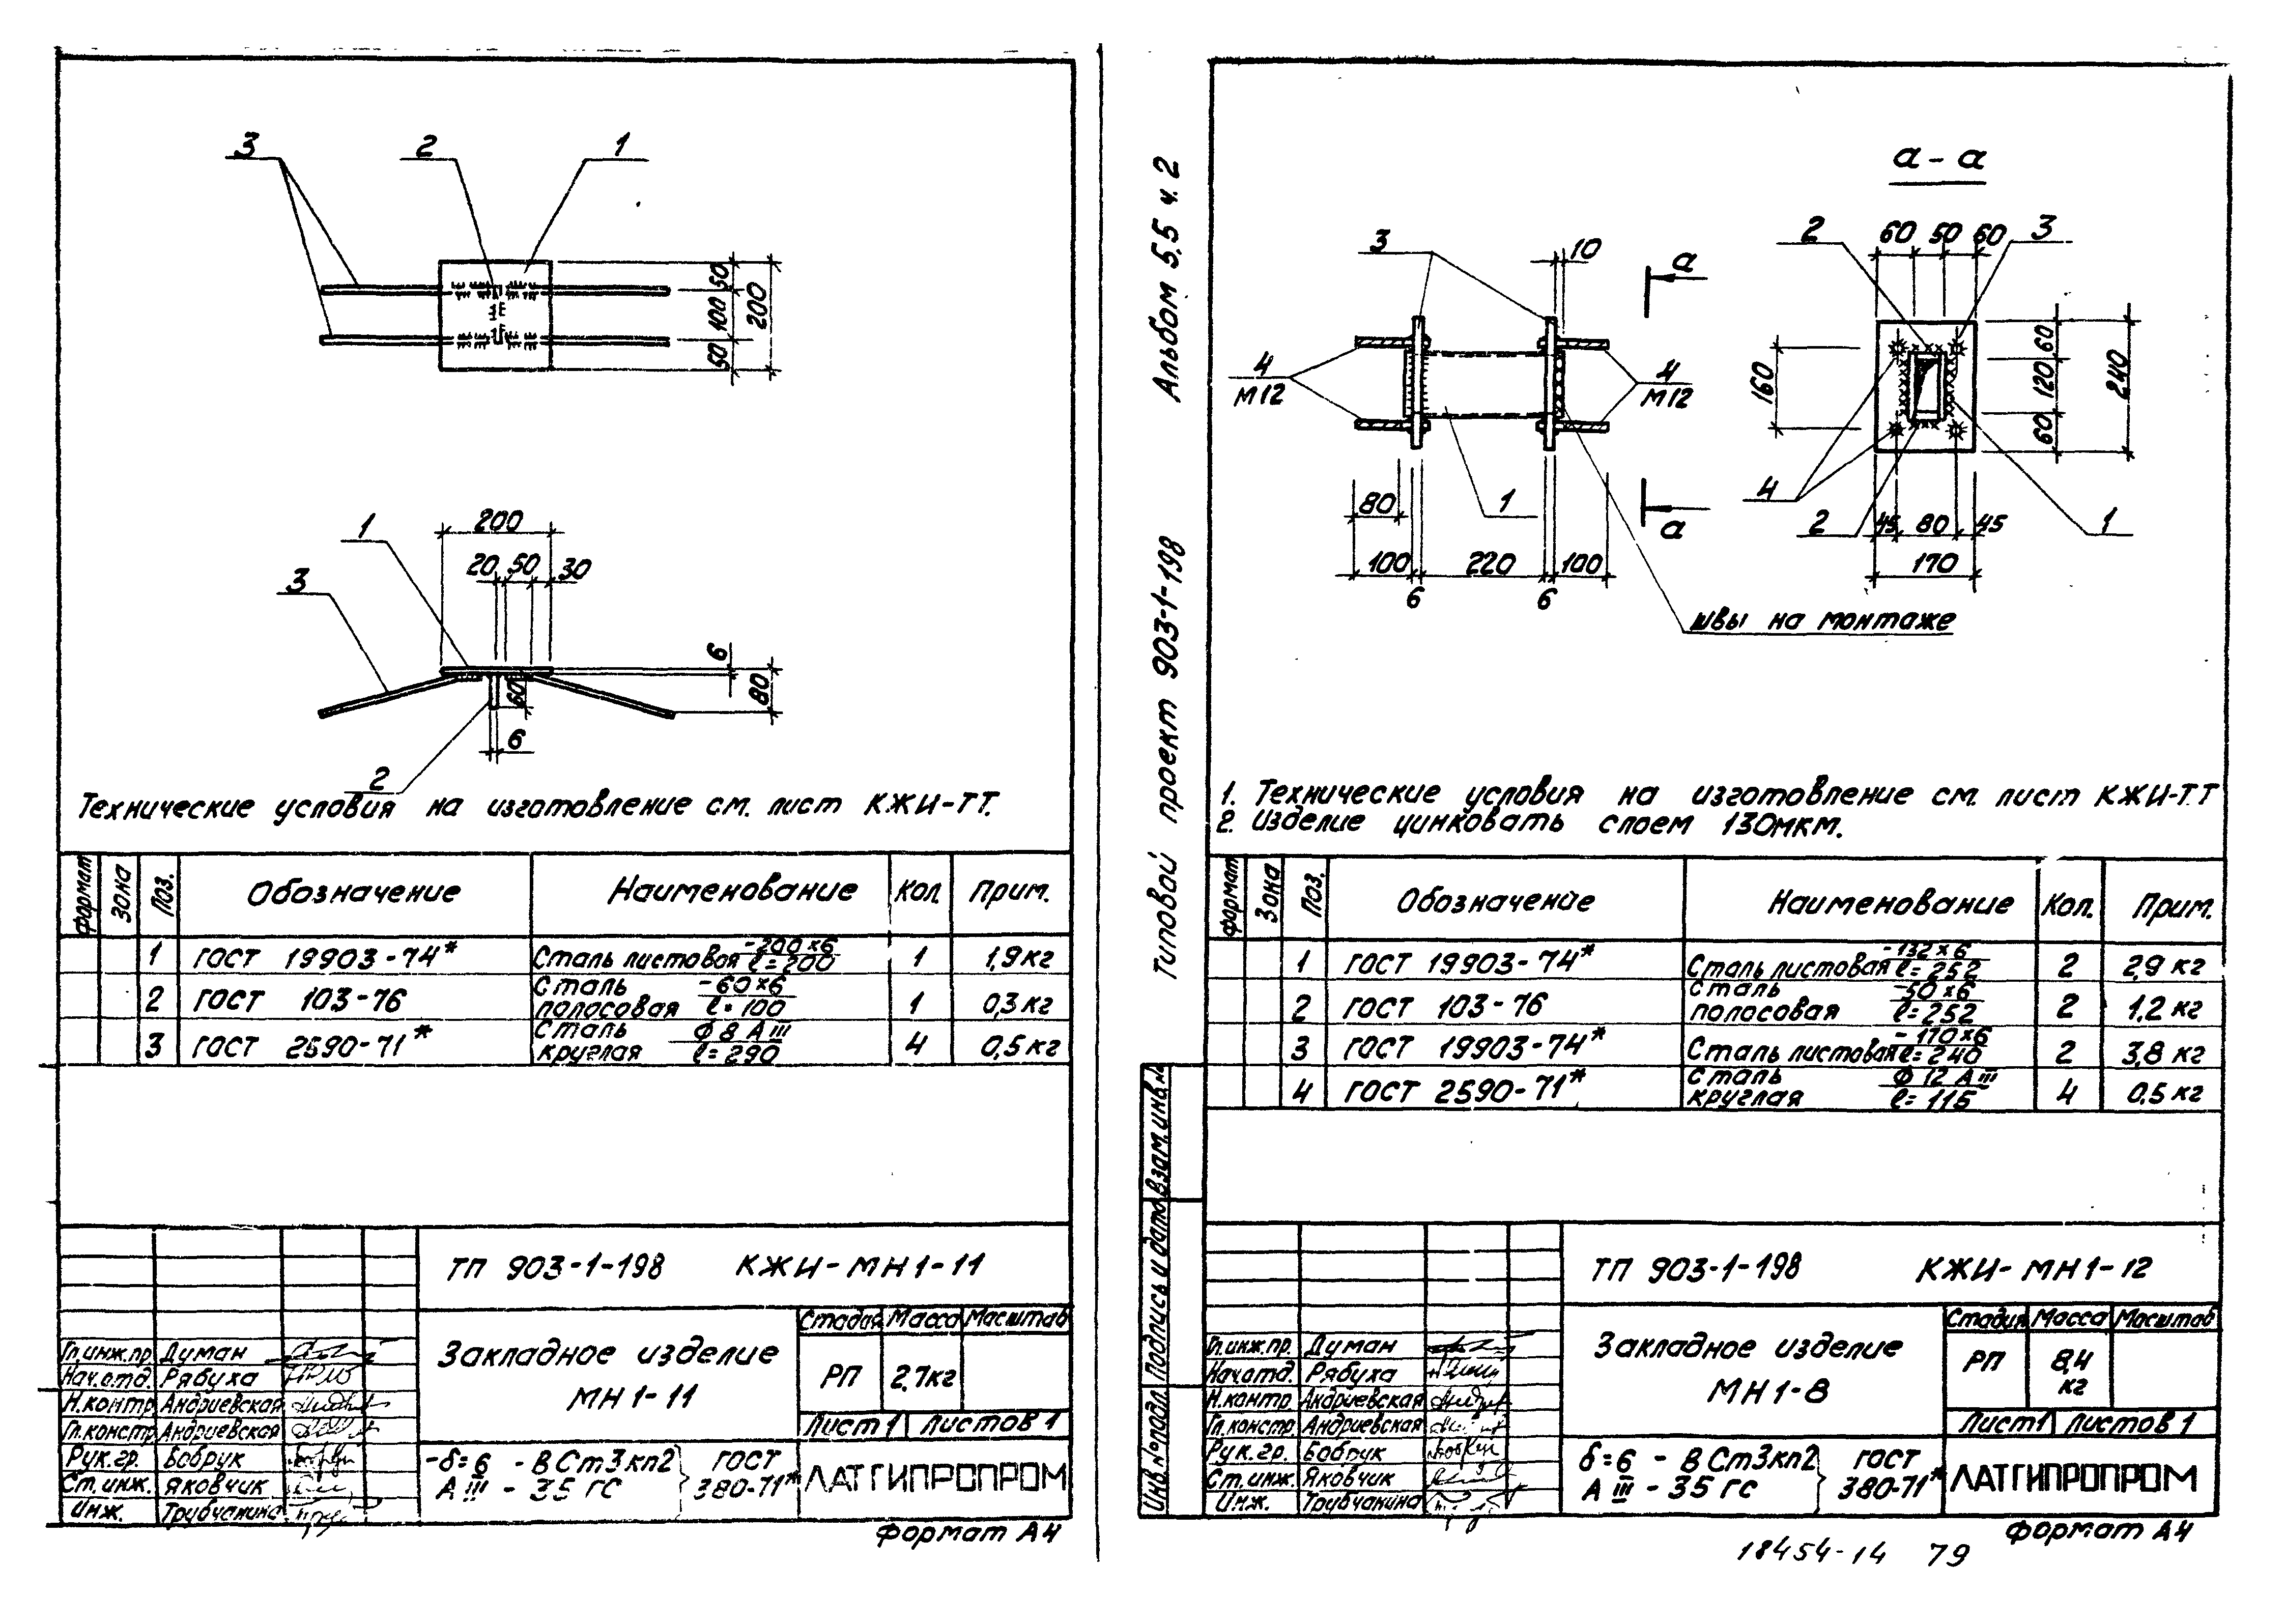 3 2 1
50
100
50
200
1 200
20 50 30
3
6
80
60
6
2
Технические условия на изготовление см. лист КЖИ-ТТ.
формат Зона Поз. Обозначение Наименование Кол. Прим.
1 ГОСТ 19903-74* Сталь листовая -200×6 ℓ=200 1 1,9 кг
2 ГОСТ 103-76 Сталь полосовая -60×6 ℓ=100 1 0,3 кг
3 ГОСТ 2590-71* Сталь круглая Ф 8 А III ℓ=290 4 0,5 кг
ТП 903-1-198 КЖИ-МН1-11
Закладное изделие
МН1-11
Стадия Масса Масштаб
РП 2,7кг
Лист 1 Листов 1
Гл.инж.пр. Думан
Нач.отд. Рябуха
Н.контр Андриевская
Гл.констр Андриевская
Рук.гр. Бобрук
Ст.инж. Яковчик
Инж. Трубчанина
-δ=6 - ВСт3кп2
А III - 35 ГС
ГОСТ
380-71*
ЛАТГИПРОПРОМ
Формат А4
Альбом 5,5 ч.2
Типовой проект 903-1-198
а - а
3 10 а
2 60 50 60 3
4
М12
4
М12
160
60
120
60
240
80 1 а
4
2 45 80 45 1
100 220 100
170
6 6
швы на монтаже
1. Технические условия на изготовление см. лист КЖИ-ТТ
2. Изделие цинковать слоем 130мкм.
формат Зона Поз. Обозначение Наименование Кол. Прим.
1 ГОСТ 19903-74* Сталь листовая -132×6 ℓ=252 2 2,9 кг
2 ГОСТ 103-76 Сталь полосовая -50×6 ℓ=252 2 1,2 кг
3 ГОСТ 19903-74* Сталь листовая -170×6 ℓ=240 2 3,8 кг
4 ГОСТ 2590-71* Сталь круглая Ф 12 А III ℓ=115 4 0,5 кг
Взам.инв.№
Подпись и дата
Инв.№подл.
ТП 903-1-198 КЖИ-МН1-12
Закладное изделие
МН1-8
Стадия Масса Масштаб
РП 8,4 кг
Лист 1 Листов 1
Гл.инж.пр. Думан
Нач.отд. Рябуха
Н.контр Андриевская
Гл.констр Андриевская
Рук.гр. Бобрук
Ст.инж. Яковчик
Инж. Трубчанина
δ=6 - ВСт3кп2
А III - 35 ГС
ГОСТ
380-71*
ЛАТГИПРОПРОМ
Формат А4
18454-14 79